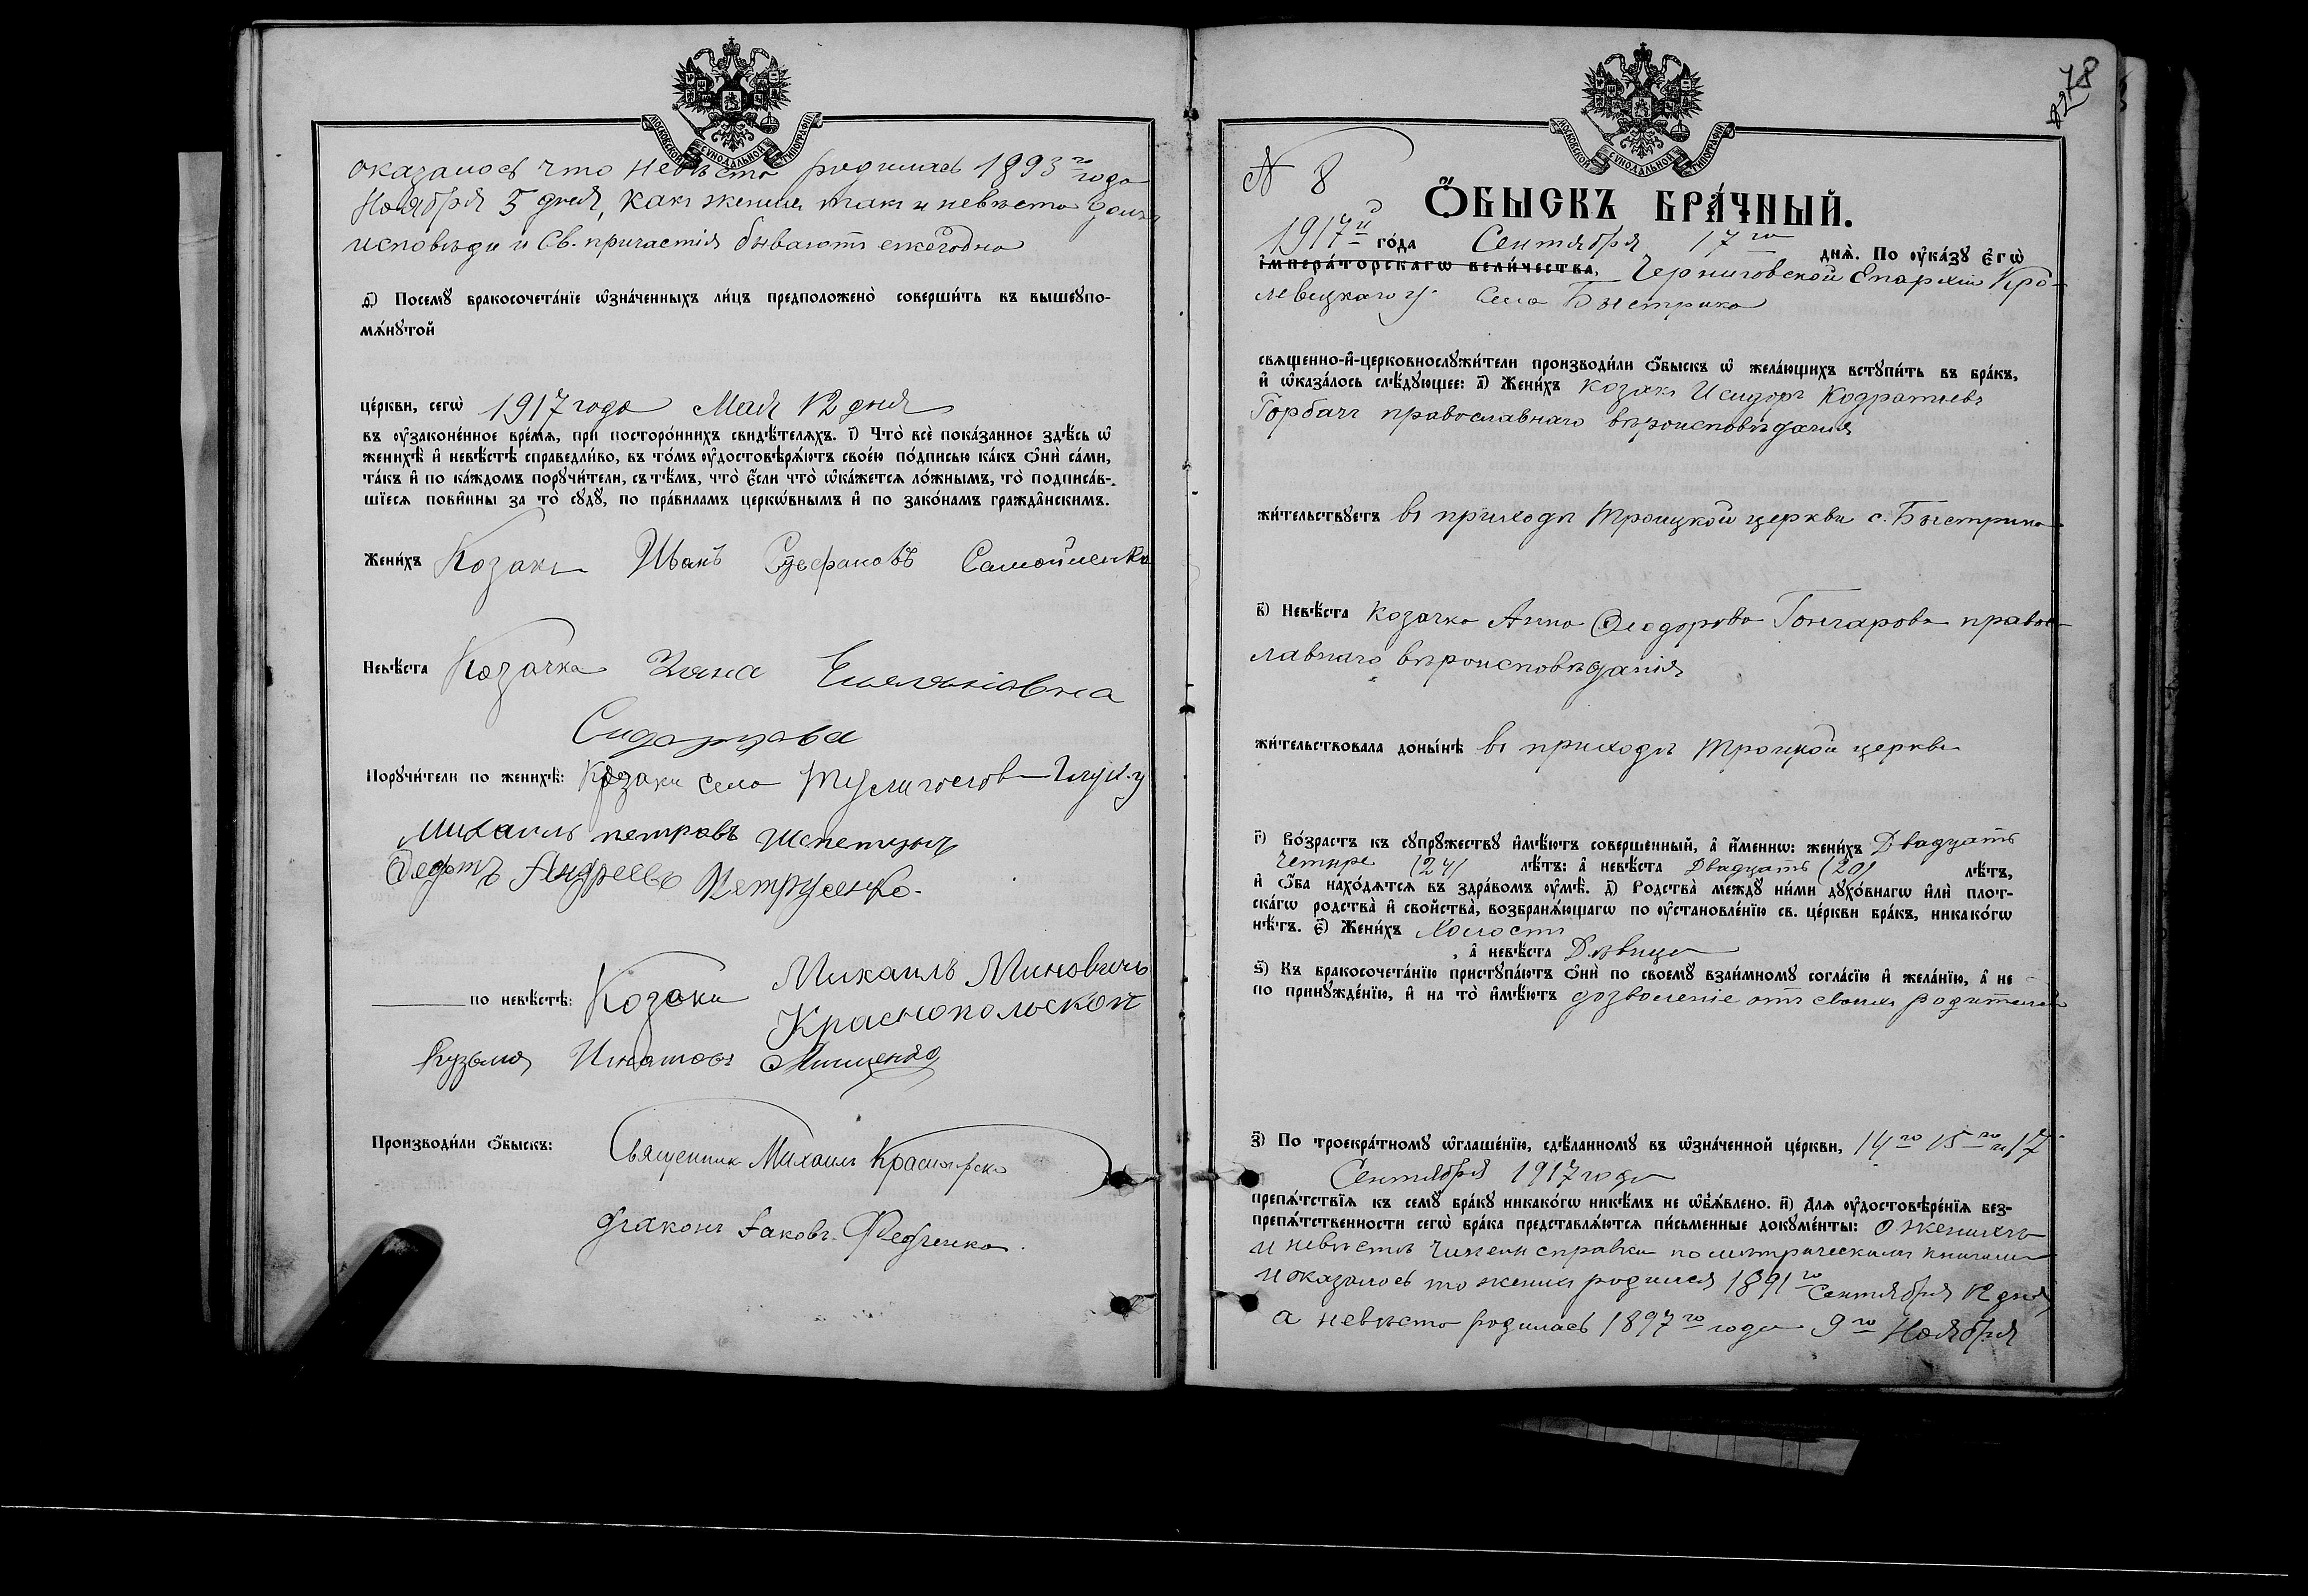 МОСКОВСКОЙ СѴНОДАЛЬНОЙ ТИПОГРАФІИ
оказалось что невѣста родилась 1893 го года
Ноября 5 дня, какъ женихъ такъ и невѣста
исповѣди и Св. причастія бываютъ ежегодно
Посемꙋ бракосочета́нїе ѡ҆зна́ченныхъ ли́цъ предположено̀ соверши́ть въ вышеꙋпо-
мѧ́нꙋтой
це́ркви, сегѡ̀ 1917 года Мая 12 дня
въ ᲂу҆законе́нное вре́мѧ, при посторо́ннихъ свидѣ́телѧхъ. і҃) Что̀ всѐ пока́занное здѣ́сь ѡ҆
женихѣ̀ и҆ невѣ́стѣ справедли́во, въ то́мъ ᲂу҆достовѣрѧ́ютъ свое́ю по́дписью ка́къ ѻ҆нѝ са́ми,
та́къ и҆ по ка́ждомъ порꙋчи́тели, съ тѣ́мъ, что̀ є҆́сли что̀ ѡ҆ка́жется ло́жнымъ, то̀ подписа́в-
шїеся пови́нны за то̀ сꙋдꙋ̀, по пра́виламъ церкѡ́внымъ и҆ по зако́намъ гражда̂нскимъ.
Жени́хъ Козакъ Иванъ Стефановъ Самойленко
Невѣ́ста Козачка Емельяновна
Порꙋчи́тели по женихѣ̀: Козаки села
Михаилъ петровъ
Федотъ Андреевъ Петрусенко.
по невѣ́стѣ: Козаки Михаилъ Миновичъ
Краснопольской
Кузьма Игнатовъ Мищенко
Производи́ли ѻ҆́быскъ: Священник Михаилъ
діаконъ Іаковъ Федченко.
78
МОСКОВСКОЙ СѴНОДАЛЬНОЙ ТИПОГРАФІИ
N 8
Ѻ҆́БЫСКЪ БРА́ЧНЫЙ.
1917 й го́да Сентября 17 го днѧ̀. По ᲂу҆ка́зꙋ є҆гѡ̀
і҆мпера́торскагѡ вели́чества, Черниговской Епархіи Кро-
левецкаго у. Села Быстрика
свѧще́нно-и҆-церковнослꙋжи́тели производи́ли ѻ҆́быскъ ѡ҆ жела́ющихъ встꙋпи́ть въ бра́къ,
и҆ ѡ҆каза́лось слѣ́дꙋющее: а҃) Жени́хъ козакъ Исидоръ Кодратьевъ
Горбачъ православнаго вѣроисповѣданія
жи́тельствꙋетъ въ приходѣ Троицкой церкви с. Быстрика
в҃) Невѣ́ста козачка Анна Ѳеодорова Гончарова правос-
лавнаго вѣроисповѣданія
жи́тельствовала доны́нѣ въ приходѣ Троицкой церкви
г҃) Во́зрастъ къ сꙋпрꙋ́жествꙋ и҆мѣ́ютъ соверше́нный, а҆ и҆́меннѡ: жени́хъ Двадцать
четыре (24) лѣ́тъ: а҆ невѣ́ста Двадцать (20) лѣ́тъ,
и҆ ѻ҆́ба нахо́дѧтсѧ въ здра́вомъ ᲂу҆мѣ̀. д҃) Родства̀ междꙋ̀ ни́ми дꙋхо́внагѡ и҆лѝ пло́т-
скагѡ родства̀ и҆ сво́йства̀, возбранѧ́ющагѡ по ᲂу҆становле́нїю св. це́ркви бра́къ, никако́гѡ
нѣ́тъ. є҃) Жени́хъ Холостъ
, а҆ невѣ́ста Дѣвица
ѕ҃) Къ бракосочета́нїю пристꙋпа́ютъ ѻ҆нѝ по своемꙋ̀ взаи́мномꙋ согла́сїю и҆ жела́нїю, а҆ не
по принꙋжде́нїю, и҆ на то̀ и҆мѣ́ютъ дозволеніе отъ своихъ родителей
з҃) По троекра́тномꙋ ѡ҆глаше́нїю, сдѣ́ланномꙋ въ ѡ҆зна́ченной це́ркви, 14 го 15 го и 17
Сентября 1917 года
препѧ́тствїѧ къ семꙋ̀ бра́кꙋ никако́гѡ никѣ́мъ не ѡ҆б̾ѧ́влено. и҃) Длѧ ᲂу҆достовѣре́нїѧ без-
препѧ́тственности сегѡ̀ бра́ка представлѧ́ютсѧ пи́сьменные докꙋме́нты: о женихѣ
и невѣстѣ справки по метрическимъ книгамъ
и оказалось что женихъ родился 1891 го Сентября 12 дня,
а невѣста родилась 1897 го года 9 го Ноября